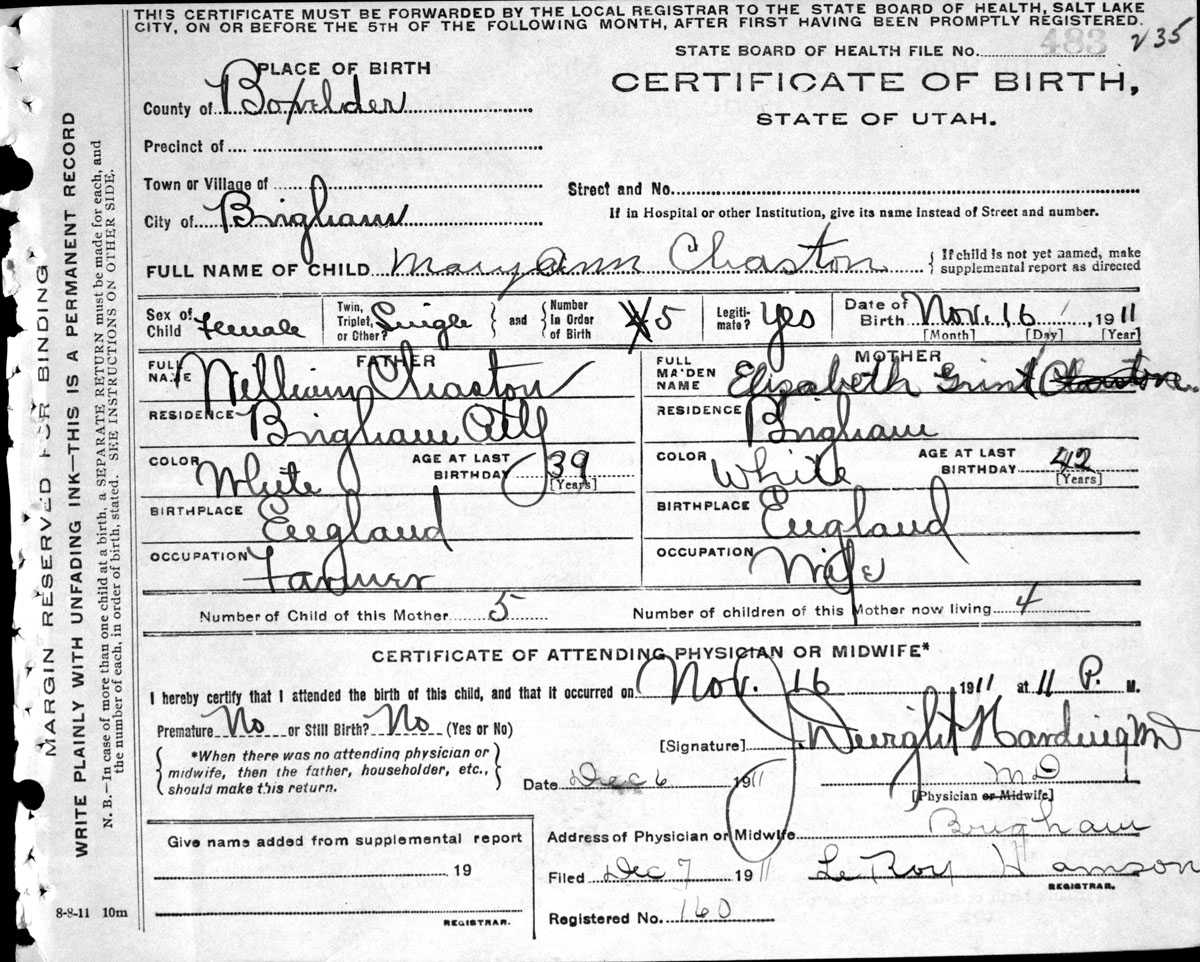 THIS CERTIFICATE MUST BE FORWARDED BY THE LOCAL REGISTRAR TO THE STATE BOARD OF HEALTH, SALT LAKE
CITY, ON OR BEFORE THE 5TH OF THE FOLLOWING MONTH, AFTER FIRST HAVING BEEN PROMPTLY REGISTERED.
235
STATE BOARD OF HEALTH FILE No. 483
CERTIFICATE OF BIRTH,
STATE OF UTAH.
PLACE OF BIRTH
County of Boxelder
Precinct of
Town or Village of
Street and No.
City of Brigham
If in Hospital or other Institution, give its name instead of Street and number.
FULL NAME OF CHILD Mary Ann Chaston
If child is not yet named, make
supplemental report as directed
Sex of Child Female
Twin, Triplet, or Other? Single
and
Number in Order of Birth 5
Legitimate? Yes
Date of Birth Nov. 16, 1911
[Month] [Day] [Year]
FATHER
FULL NAME William Chaston
RESIDENCE Brigham City
COLOR White
AGE AT LAST BIRTHDAY 39
[Years]
BIRTHPLACE England
OCCUPATION Farmer
MOTHER
FULL MAIDEN NAME Elizabeth Grint Chaston
RESIDENCE Brigham
COLOR White
AGE AT LAST BIRTHDAY 42
[Years]
BIRTHPLACE England
OCCUPATION Wife
Number of Child of this Mother 5
Number of children of this Mother now living 4
CERTIFICATE OF ATTENDING PHYSICIAN OR MIDWIFE*
I hereby certify that I attended the birth of this child, and that it occurred on Nov. 16 1911 at 11 P. M.
Premature No or Still Birth? No (Yes or No)
*When there was no attending physician or
midwife, then the father, householder, etc.,
should make this return.
[Signature] J. Dwight Harding MD
Date Dec 6 1911
MD
[Physician or Midwife]
Address of Physician or Midwife Brigham
Filed Dec 7 1911
LeRoy
REGISTRAR.
Registered No. 160
Give name added from supplemental report
19
REGISTRAR.
8-8-11 10m
MARGIN RESERVED FOR BINDING
WRITE PLAINLY WITH UNFADING INK—THIS IS A PERMANENT RECORD
N. B.—In case of more than one child at a birth, a SEPARATE RETURN must be made for each, and
the number of each, in order of birth, stated. SEE INSTRUCTIONS ON OTHER SIDE.